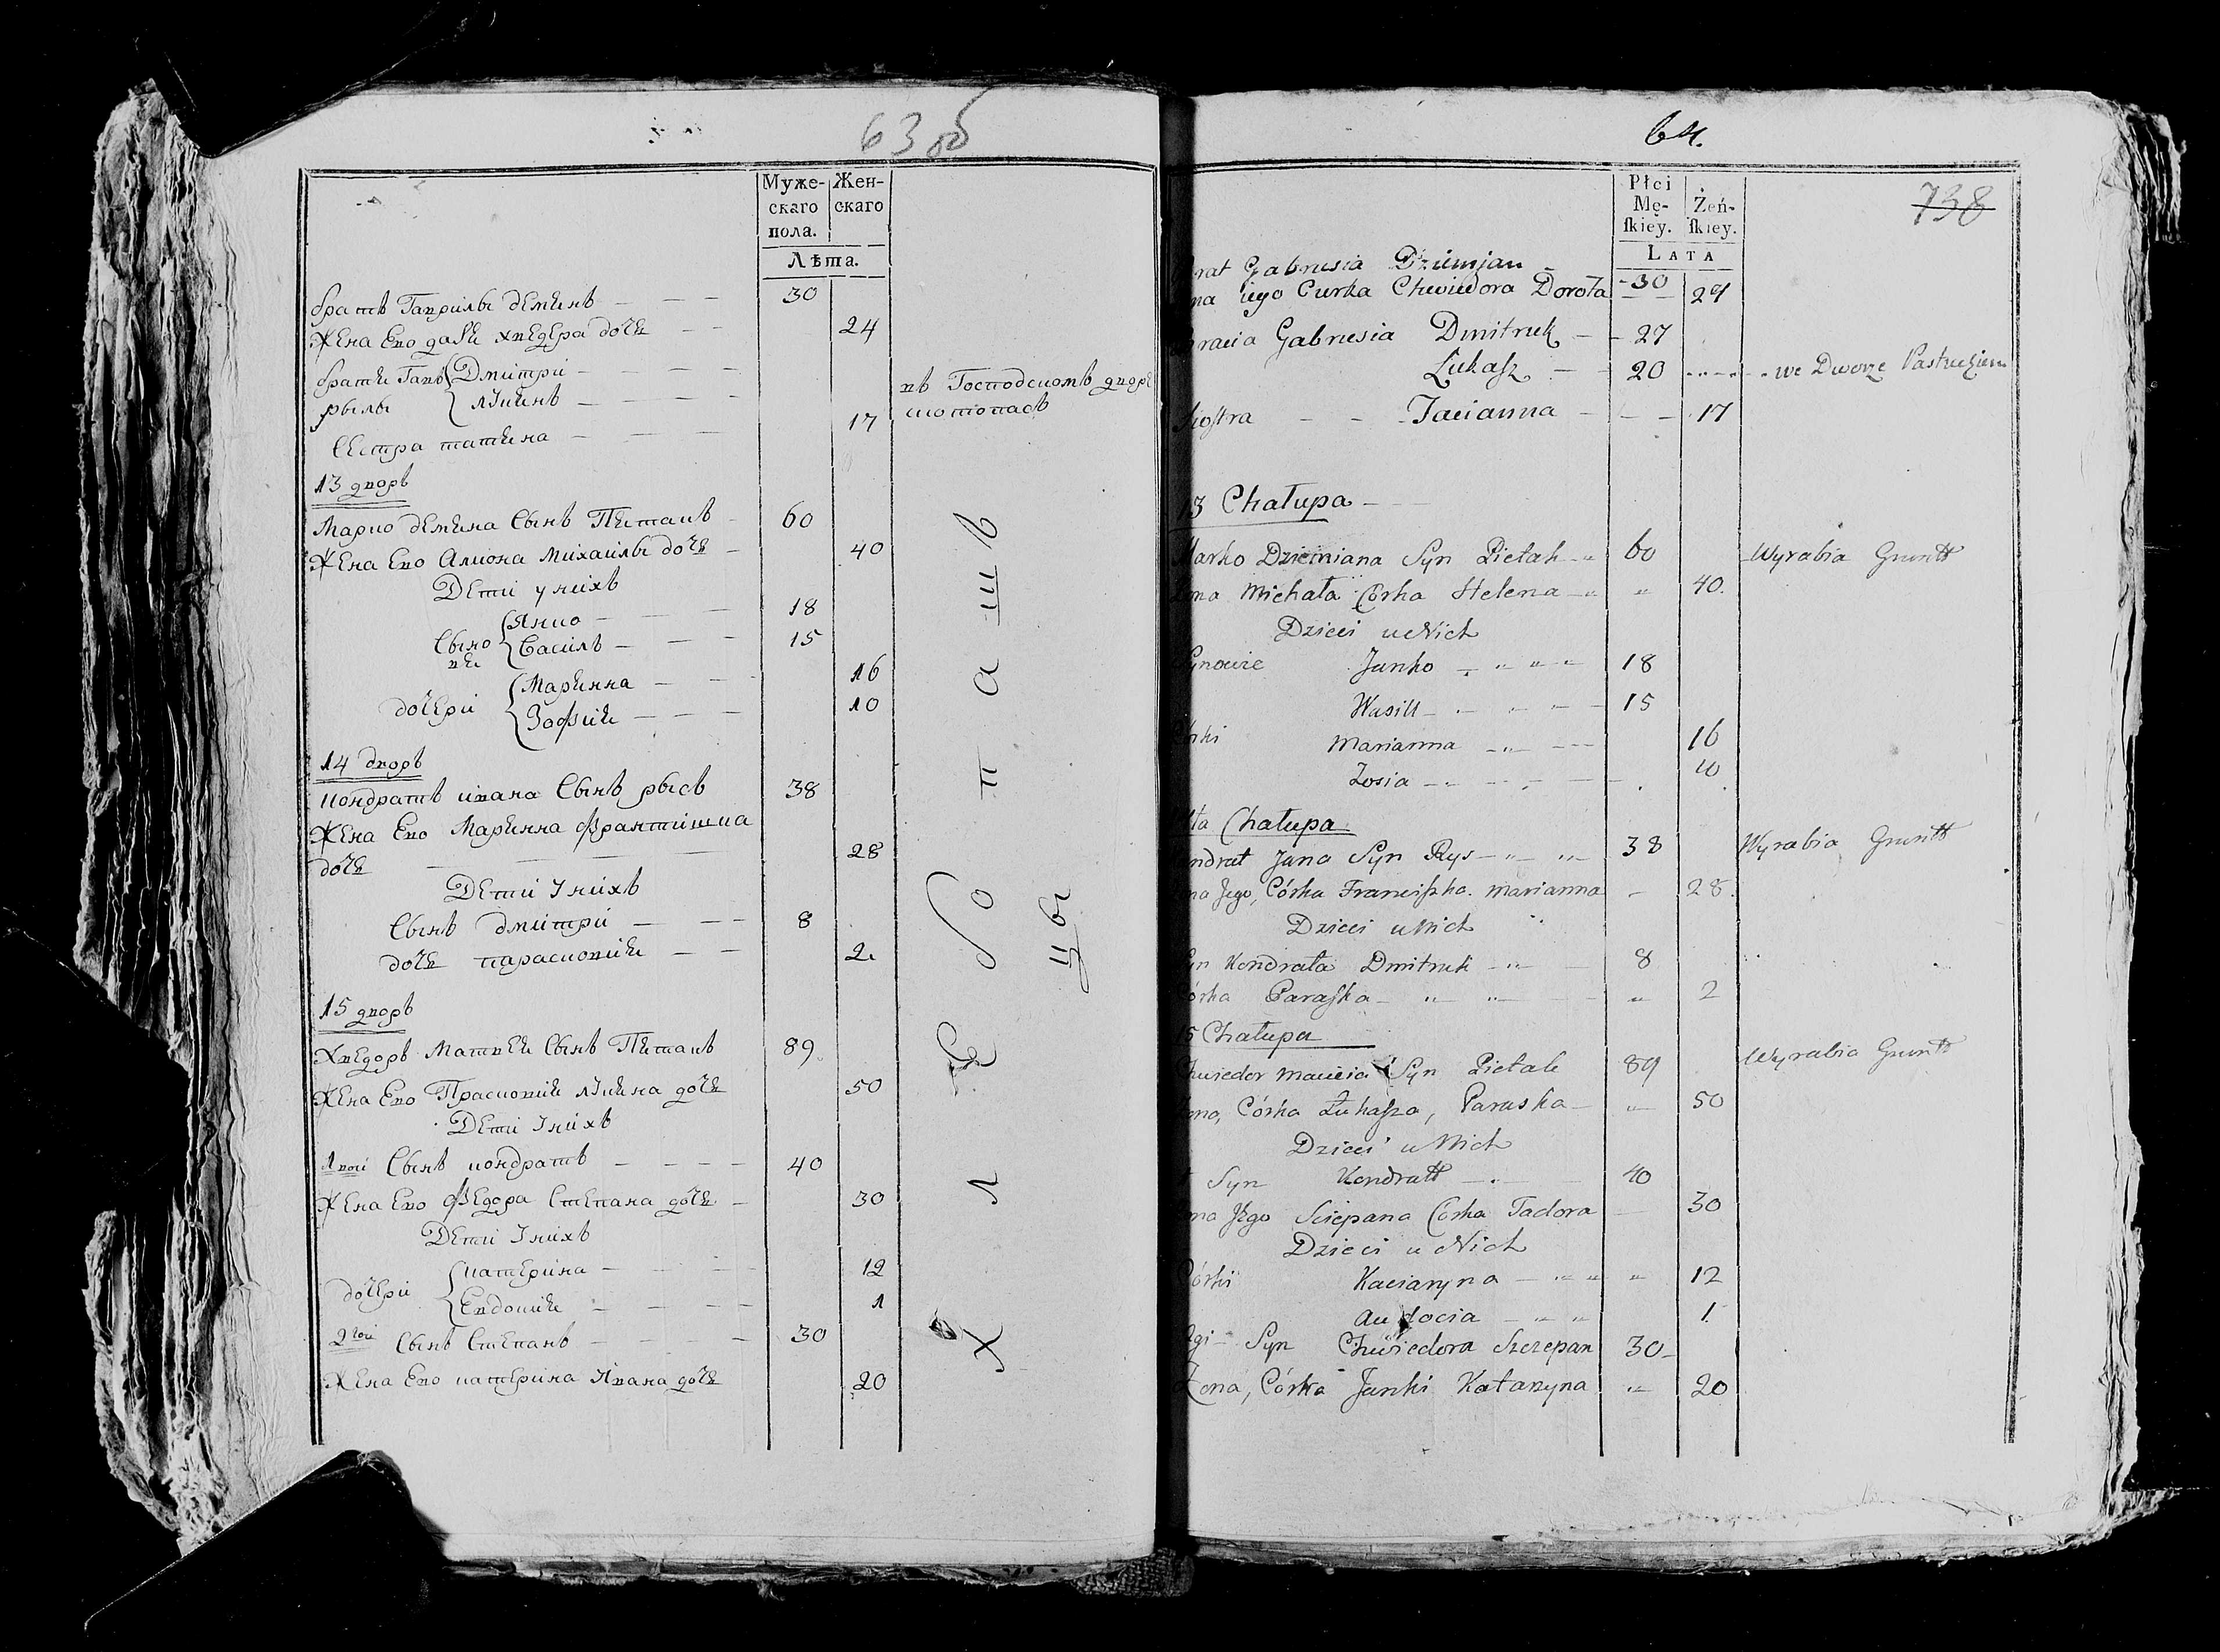 63 об
Муже- Жен-
скаго скаго
пола.
Лѣта.
братъ Гаврилы деминъ — — — 30
Жена Ево дасѣ хведера дочь — — 24
братьи Гав {Дмитри — — — въ Господскомъ дворе
рылы { лукинъ — — — 17 скотопасъ
Сестра татьяна — — —
13 дворъ
Марко демьяна Сынъ Петакъ — 60
Жена Ево Алиона Михаилы дочь — 40
Дети у нихъ
{Янко — — 18
Сыно {Василь — — — 15
вьи
{Марьяна — — 16
дочери {Зофія — — — 10
14 дворъ
кондратъ ивана Сынъ рысь 38
Жена Ево Марьяна франтишка
дочь — — — 28
Дети У нихъ
Сынъ дмитри — — — 8
дочь парасковия — — 2
15 дворъ
Хведоръ Матвеи Сынъ Петакъ 89
Жена Ево Прасковия лукина дочь 50
Дети У нихъ
1вои Сынъ кондратъ — — — — 40
Жена Ево Федора Степана дочь — 30
Дети У нихъ
{катерина — — — — 12
дочери {Евдокия — — — — 1
2гои Сынъ Степанъ — — — — 30
Жена Ево катерина Ивана дочь 20
Х л е б о п а ш
цы
64.
738
Płci
Mę- Żeń-
ſkiey. ſkiey.
LATA
rat Gabrusia Dziemjan —
na iego Curka Chwiedora Dorota -30 24
racia Gabrusia Dmitruk — - 27
Łukaſz — - 20 - - - - we Dworze Pastuchem
Sioſtra - - - Tacianna - - - 17
13 Chałupa — —
Marko Dziemiana Syn Pietak - „ 60 Wyrabia Grontt
Żona Michała Córka Helena — „ „ 40.
Dzieci u Nich
Synowie Janko — „ „ „ 18
Wasill — - - - 15
Córki Marianna — „ — - - 16
Zosia — - - - - 10
14ta Chałupa
ondrat Jana Syn Rys — „ — „ 38 Wyrabia Grontt
ona Jego, Córka Franciſzka. Marianna - 28.
Dzieci u Nich
Syn Kondrata Dmitruk — „ — 8
Córka Paraſka — „ — „ — „ 2
15 Chałupa
Chwiedor Macieia Syn Pietak 89 Wyrabia Gruntt
ona, Córka Łukaſza, Paraska — „ 50
Dzieci u Nich
Syn Kondratt — . — 40
ona Jego Sciepana Córka Tadora — 30
Dzieci u Nich
Córki Kacianyna — „ „ „ 12
Audocia — „ „ 1.
gi — Syn Chwiedora Szczepan 30 —
Żona, Córka Janki Katarzyna „ 20